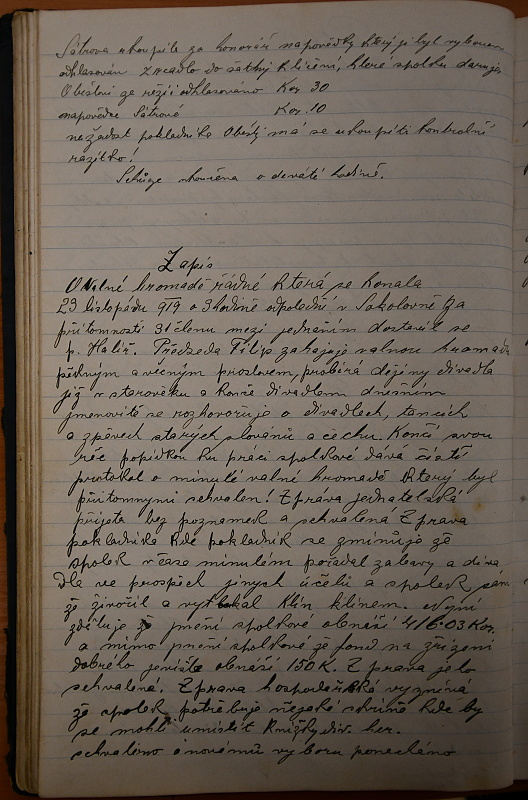 Sátrova ukoupíla za honorář napovědky který jí byl vyborem
odhlasován zrcadlo do šatny k líčení, které spolku daruje
Obešlovi ze režii odhlasováno Kor 30
napovědce Sátrové Kor. 10
na žádost pokladníka Obešly má se ukoupiti kontrolní
razítko!
Schůze ukončena o deváté hodině.
Zapis
O Valné hromadě řádné která se konala
23 listopádu 919 o 3 hodině odpolední v Sokolovně za
přitomnosti 31 členu mezi jednaním dostavil se
p. Halíř. Předseda Filip zahajuje valnou hromadu
pěkným a věcným proslovem, probírá dějiny divadla
již v starověku a končé divadlem dnešním
jmenovitě se rozhovořuje o divadlech, tancích
a zpěvech starých slovánů a čechu. Končí svou
řeč popidkou ku práci spolkové dává čísti
protokol o minulé valné hromadě který byl
přítomnymi schvalen! Zprava jednatelská
přijata bez poznamek a schvalená Zprava
pokladníka kde pokladník se zmiňuje že
spolek v čase minulém pořadal zabavy a diva
dla ve prospěch jiných účelu a spolek sám
že živořil a vytloukal klín klínem. Nyní
zděluje že jmění spolkové obnaší 416·03 Kor.
a mimo jmění spolkové že fond na zřízení
dobrého jeviště obnaší 150 K. Zprava jeho
schvalená. Zprava hospodařská vyznívá
že spolek potřebuje nějaké skříně kde by
se mohli umístit knížky div. her.
schvaleno a novému vyboru ponecháno